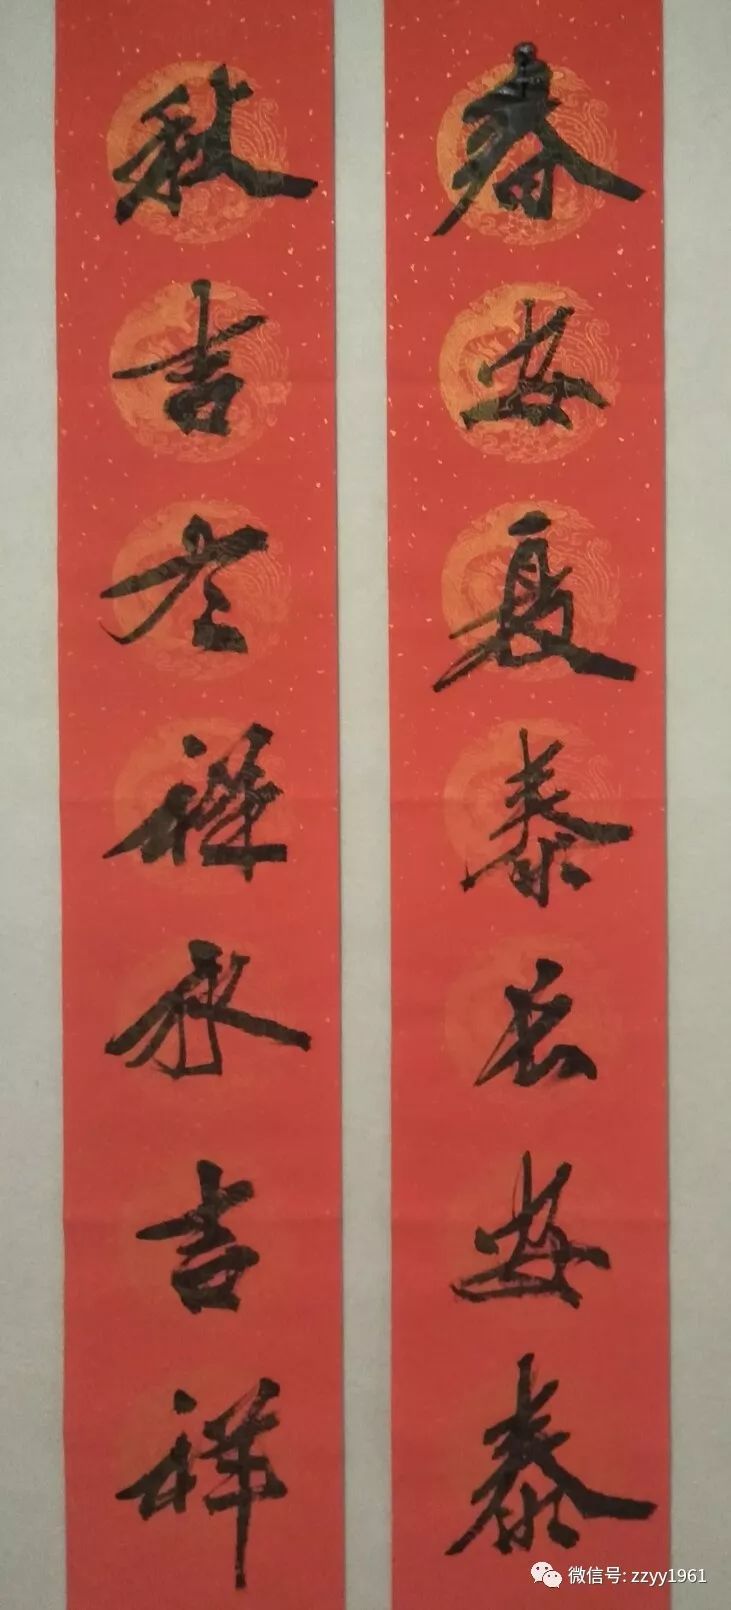 春安夏泰长安泰
秋吉冬祥永吉祥
微信号: zzyy1961